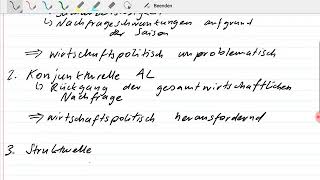 Beenden
↳ Nachfrageschwankungen aufgrund
der Saison
⇒ wirtschaftspolitisch unproblematisch
2. Konjunkturelle AL
↳ Rückgang der gesamtwirtschaftlichen
Nachfrage
⇒ wirtschaftspolitisch herausfordernd
3. Strukturelle